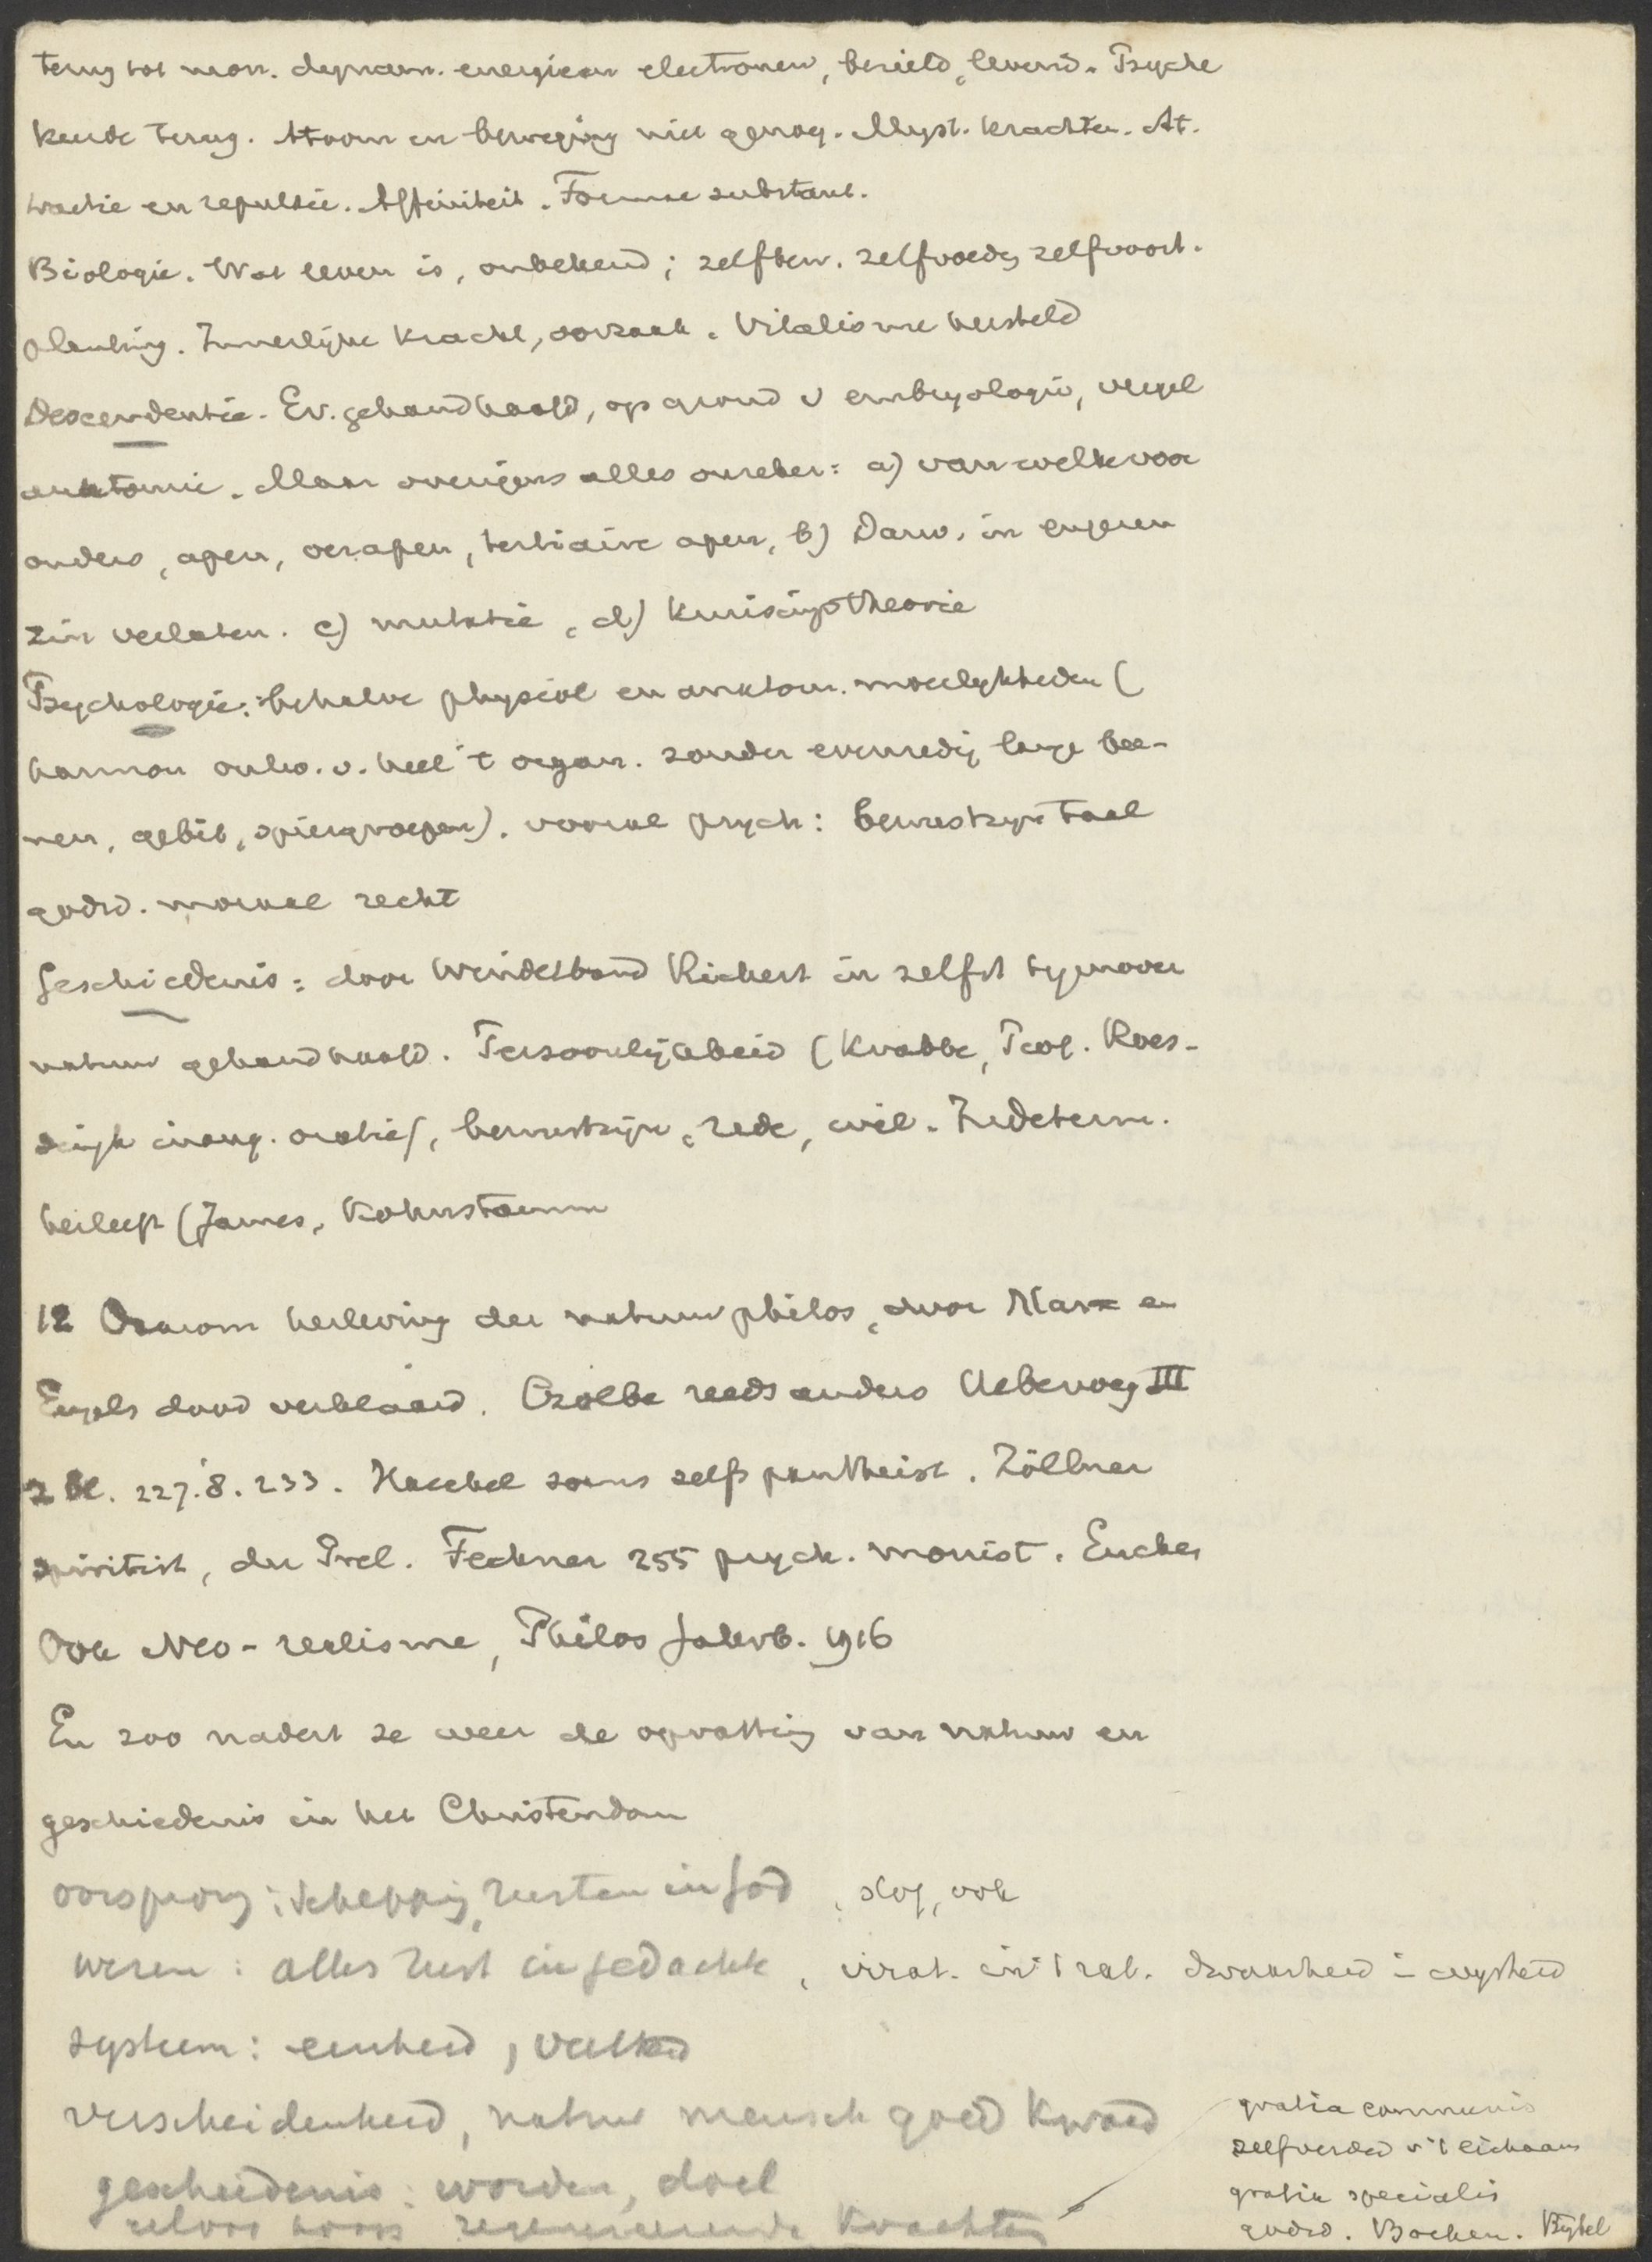 terug tot mon. dynam. energieën electronen, bezield, levend. Psyche
keerde terug. Atoom en beweging niet genoeg. Myst. krachten. At-
tractie en repulsie. Affiniteit. Formae substant.
Biologie. Wat leven is, onbekend; zelfbew. zelfvoedg zelfvoort-
planting. Innerlijke kracht, oorzaak. Vitalisme hersteld
Descendentie. Ev. gehandhaafd, op grond v embryologie, vergel
anatomie. Maar overigens alles onzeker: a) van welke voor
ouders, apen, oerapen, tertiaire apen, b) Darw. in engeren
zin verlaten. c) mutatie, d) kruisingstheorie
Psychologie: behalve physiol en anatom. moeilykheden (
harmon ontw. v. heel 't organ. zonder evenredig lange bee-
nen, gebit, spiergroepen). vooral psych: bewustzyn taal
godsd. moraal recht
Geschiedenis: door Windelband Rickert in zelfst tegenover
natuur gehandhaafd. Persoonlijkheid (Krabbe, Prof. Roes-
singh inaug. oratie), bewustzijn, rede, wil. Indeterm.
herleeft (James, Kohnstamm
12 Daarom herleving der natuurphilos, door Marx en
Engels dood verklaard. Czolbe reeds anders Ueberweg III
2 Bl. 227.8. 233. Haeckel soms zelfs pantheist. Zöllner
spiritist, du Prel. Fechner 255 psych. monist. Eucken
Ook Neo-realisme, Philos Jahrb. 1916
En zoo nadert ze weer de opvatting van natuur en
geschiedenis in het Christendom
oorsprong: schepping, rusten in God, stof, ook
wezen: alles rust in gedachte, irrat. in 't rat. dwaasheid = wysheid
systeem: eenheid, veelheid
verscheidenheid, natuur mensch goed kwaad
geschiedenis: worden, doel
regenereerende krachten
gratia communis
zelfverded v 't lichaam
gratia specialis
godsd. Boeken. Bybel